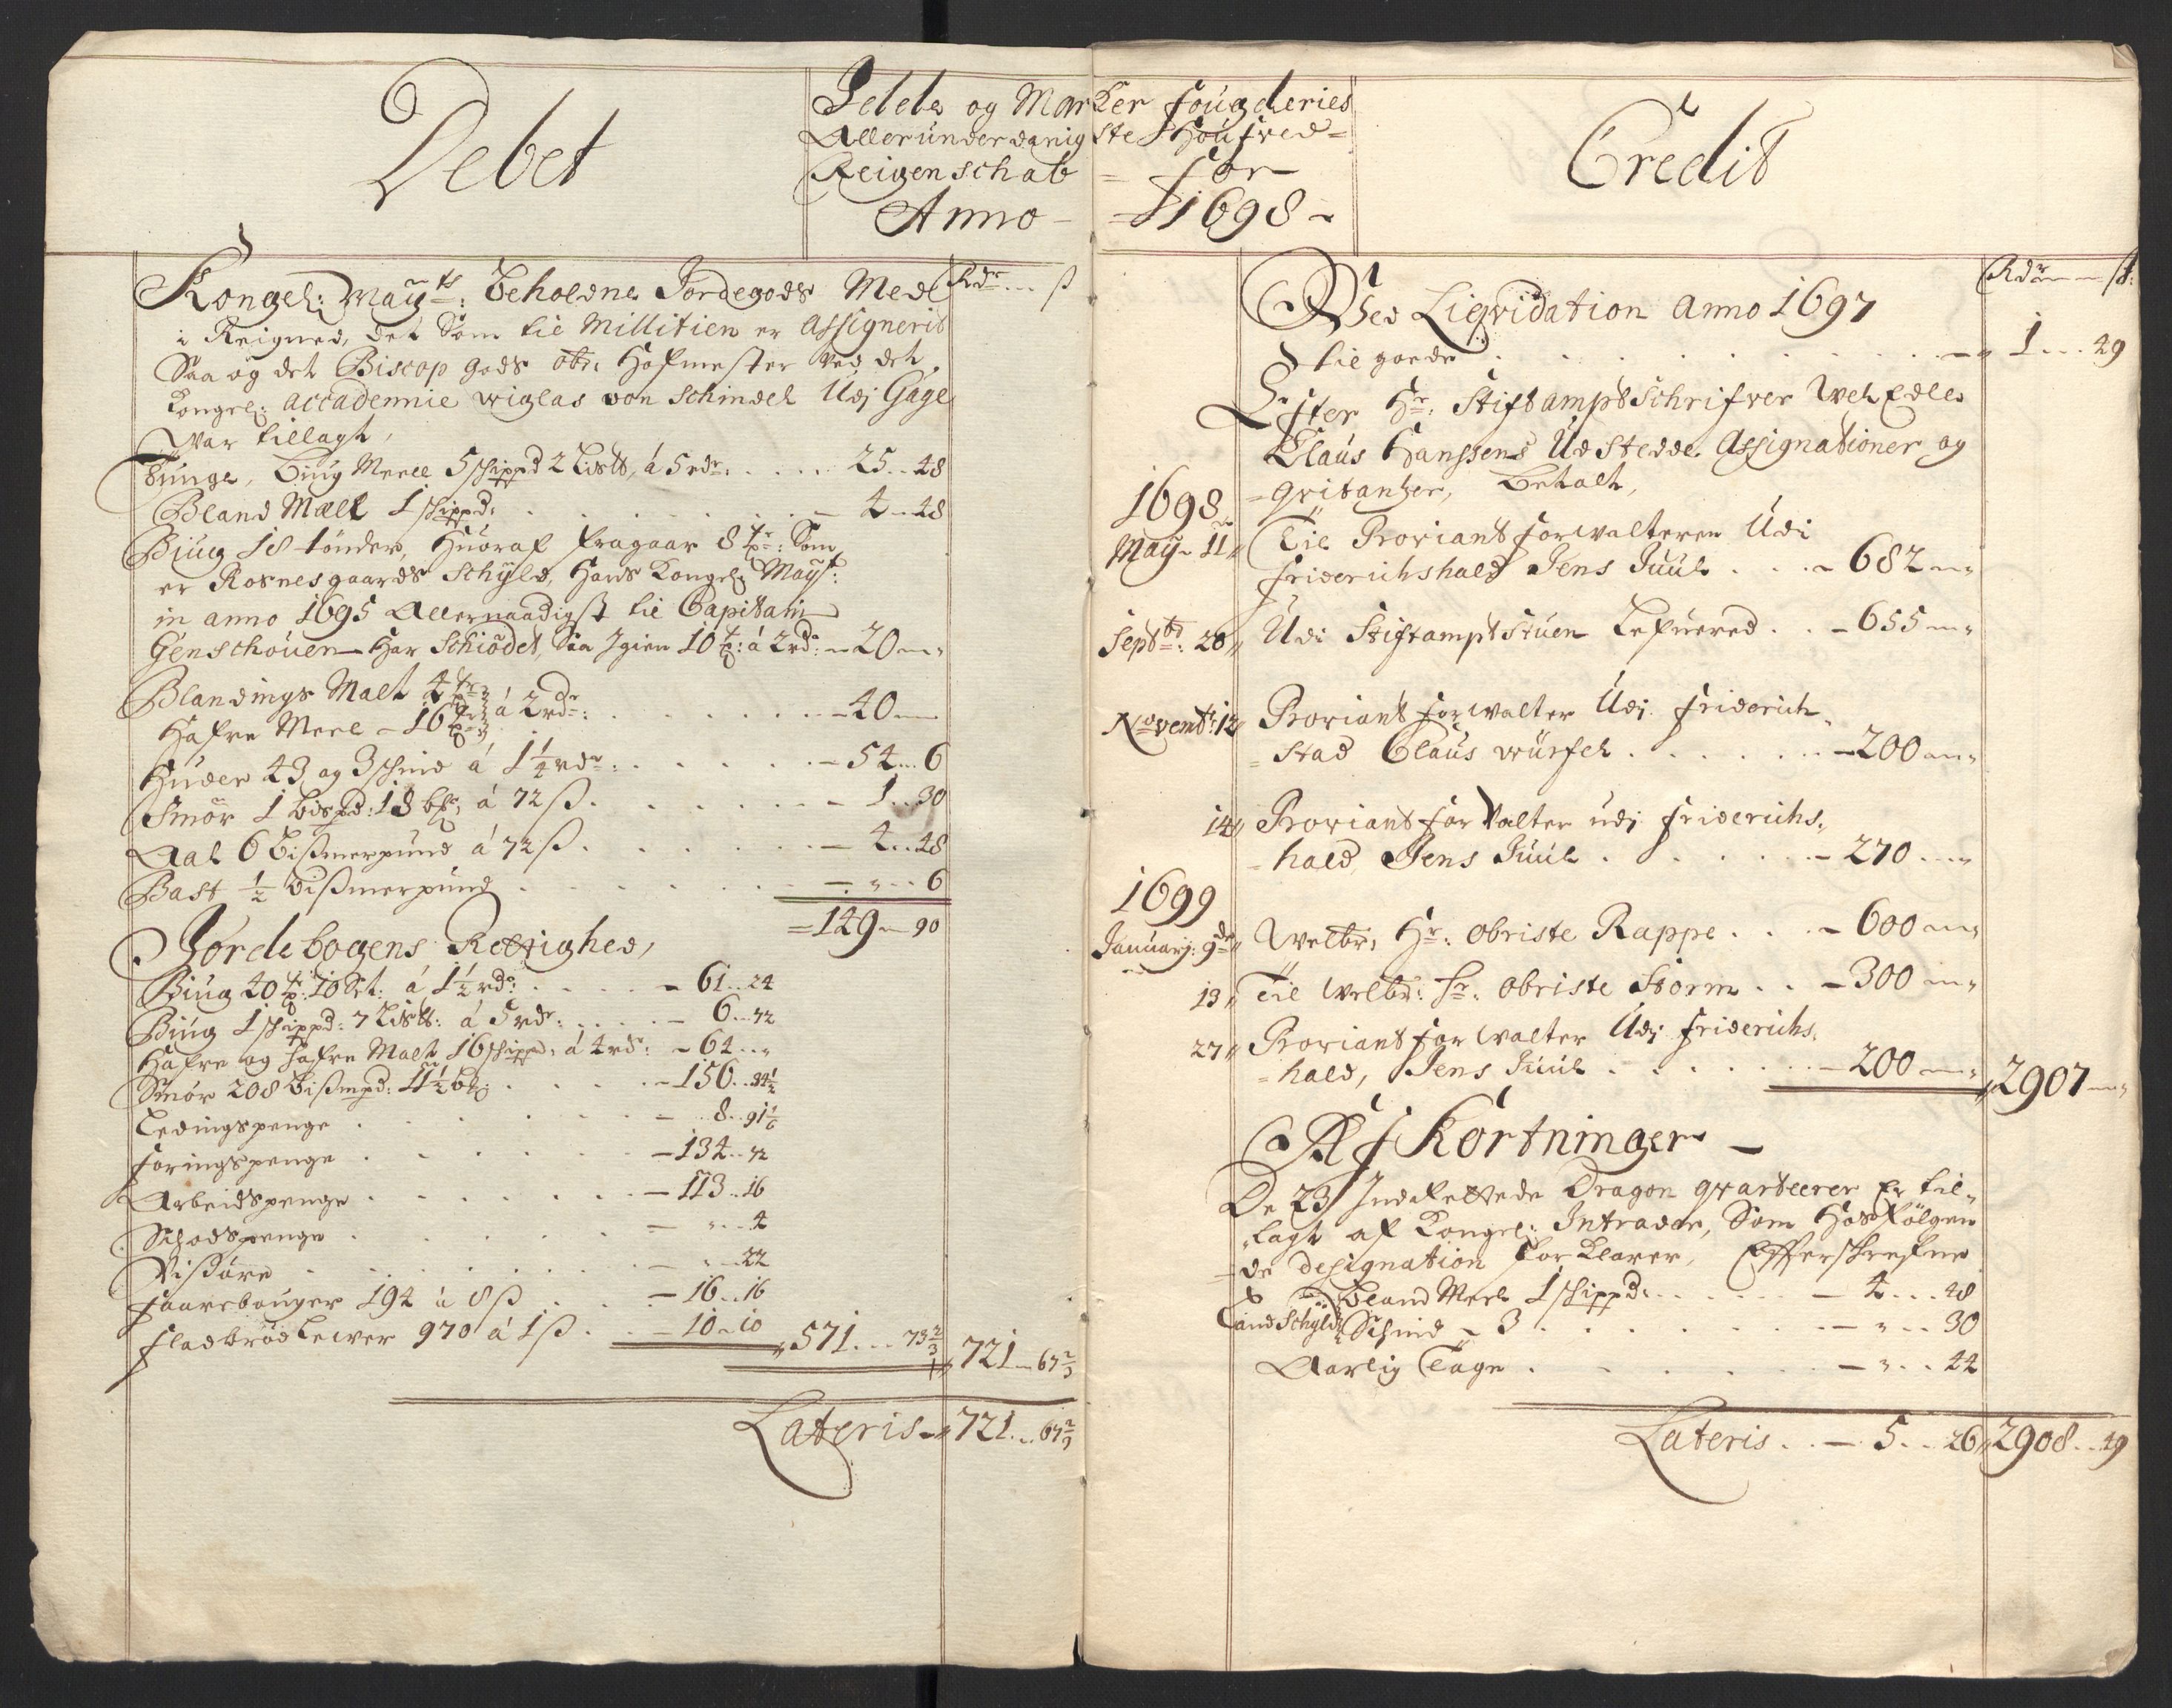 Debet
Idde og Marker Fougderies
Allerunderdanigste Houfved=
Reigenschab = for
Anno - = 1698 -
Credit
Kongel: Mayts: Beholdne Jordegods Med
Rdr --- ß
i Reigned, det Som til Millitien er Assignerit
Saa og det Biscop gods obr: Hofmester ved det
Kongel: accademie wiglas von Schindel Udj Gage
War tillagt,
Tunge, Biug Meel 5 schippd 2 Lisltt, á 5 rdr: . . . 25 .. 48
Bland Malt 1 schippd: . . . . - 4 -- 48
Biug 18 tønder, Huoraf fragaar 8 tr: Som
er Rosnesgaards Schyld, Hans Kongel: Mayt:
in anno 1695 Allernaadigst til Capitain
Genschouen Har Schiödet, Saa Igien 10 t: á 2 rdr: - 20 - "
Blandings Malt 4 tr:
Hafre Meel - 16 tr: á 2 rdr: . . . . - 40 -
Huder 43 og 3 schind á 1 1/4 rdr: . . . . - 54 .. 6
Smör 1 bispd: 18 ß: á 72 ß . . . . - 1 .. 30
Aal 6 Bißmerpund á 72 ß . . . . - 4 .. 48
Bast 1/2 Bißmerpund . . . . - " .. 6
= 149 - 90
Jordebogens Rettighed,
Biug 40 t: 10 Set: á 1 1/2 rdr: . . . - 61 .. 24
Biug 1 schippd: 7 Lisltt: á 5 rdr: . . . - 6 .. 72
Hafre og Hafre Malt 16 schippd: á 4 rdr: - 64 .. "
Smör 208 Bißmpd: 11 1/2 . . . - 156 .. 34 1/2
Ledingspenge . . . . - 8 .. 91 1/6
Foringspenge . . . . - 134 .. 72
Arbeidspenge . . . . - 113 .. 16
Schodspenge . . . . - " .. 4
Vißøre . . . . - " .. 22
Faareboüger 194 á 8 ß . . - 16 .. 16
Fladbrød Lewer 970 á 1 ß . . - 10 - 10
571 .. 73 2/3 721 - 67 2/3
Lateris - 721 .. 67 2/3
Rdr -- ß:
Ved Liqvidation Anno 1697
til gode . . . . . - 1 .. 29
Efter Hr: Stiftampt Schrifver Wel Edle
Claus Hanssens Udstedde Assignationer og
= qvitantzer, Betalt,
1698
May - 11 Til Proviant forwalteren Udi
Friderichshald Jens Juul . . - 682 - "
Septbr: 20 Udi Stiftamptstuen Lefuered . . - 655 - "
Novembr: 12 Proviant forwalter Udj. Friderich
= stad Claus würfel . . . - 200 - "
14 Proviant for Valter udj Friderichs,
= hald, Jens Juul . . . - 270 - "
1699
Januarj: 9de Welbr: Hr: Obriste Rappe . . . - 600 - "
13 Til Welbr: Hr: Obriste Storm . . - 300 - "
27 Proviant for Walter Udj Friderichs,
= hald, Jens Juul . . . - 200 - " 2907 - "
Af Kortninger -
De 23 Inddelte Dragon qvarteerer Er til=
lagt af Kongel: Intrader, Som Hosfølgen
= de designation forklarer, Efterschrefne
Bland Meel 1 schippd: . . . - 4 .. 48
Landschyld Schind - 3 . . . - " .. 30
Aarlig Tage . . . - " .. 44
Lateris . . - 5 .. 26 2908 .. 29